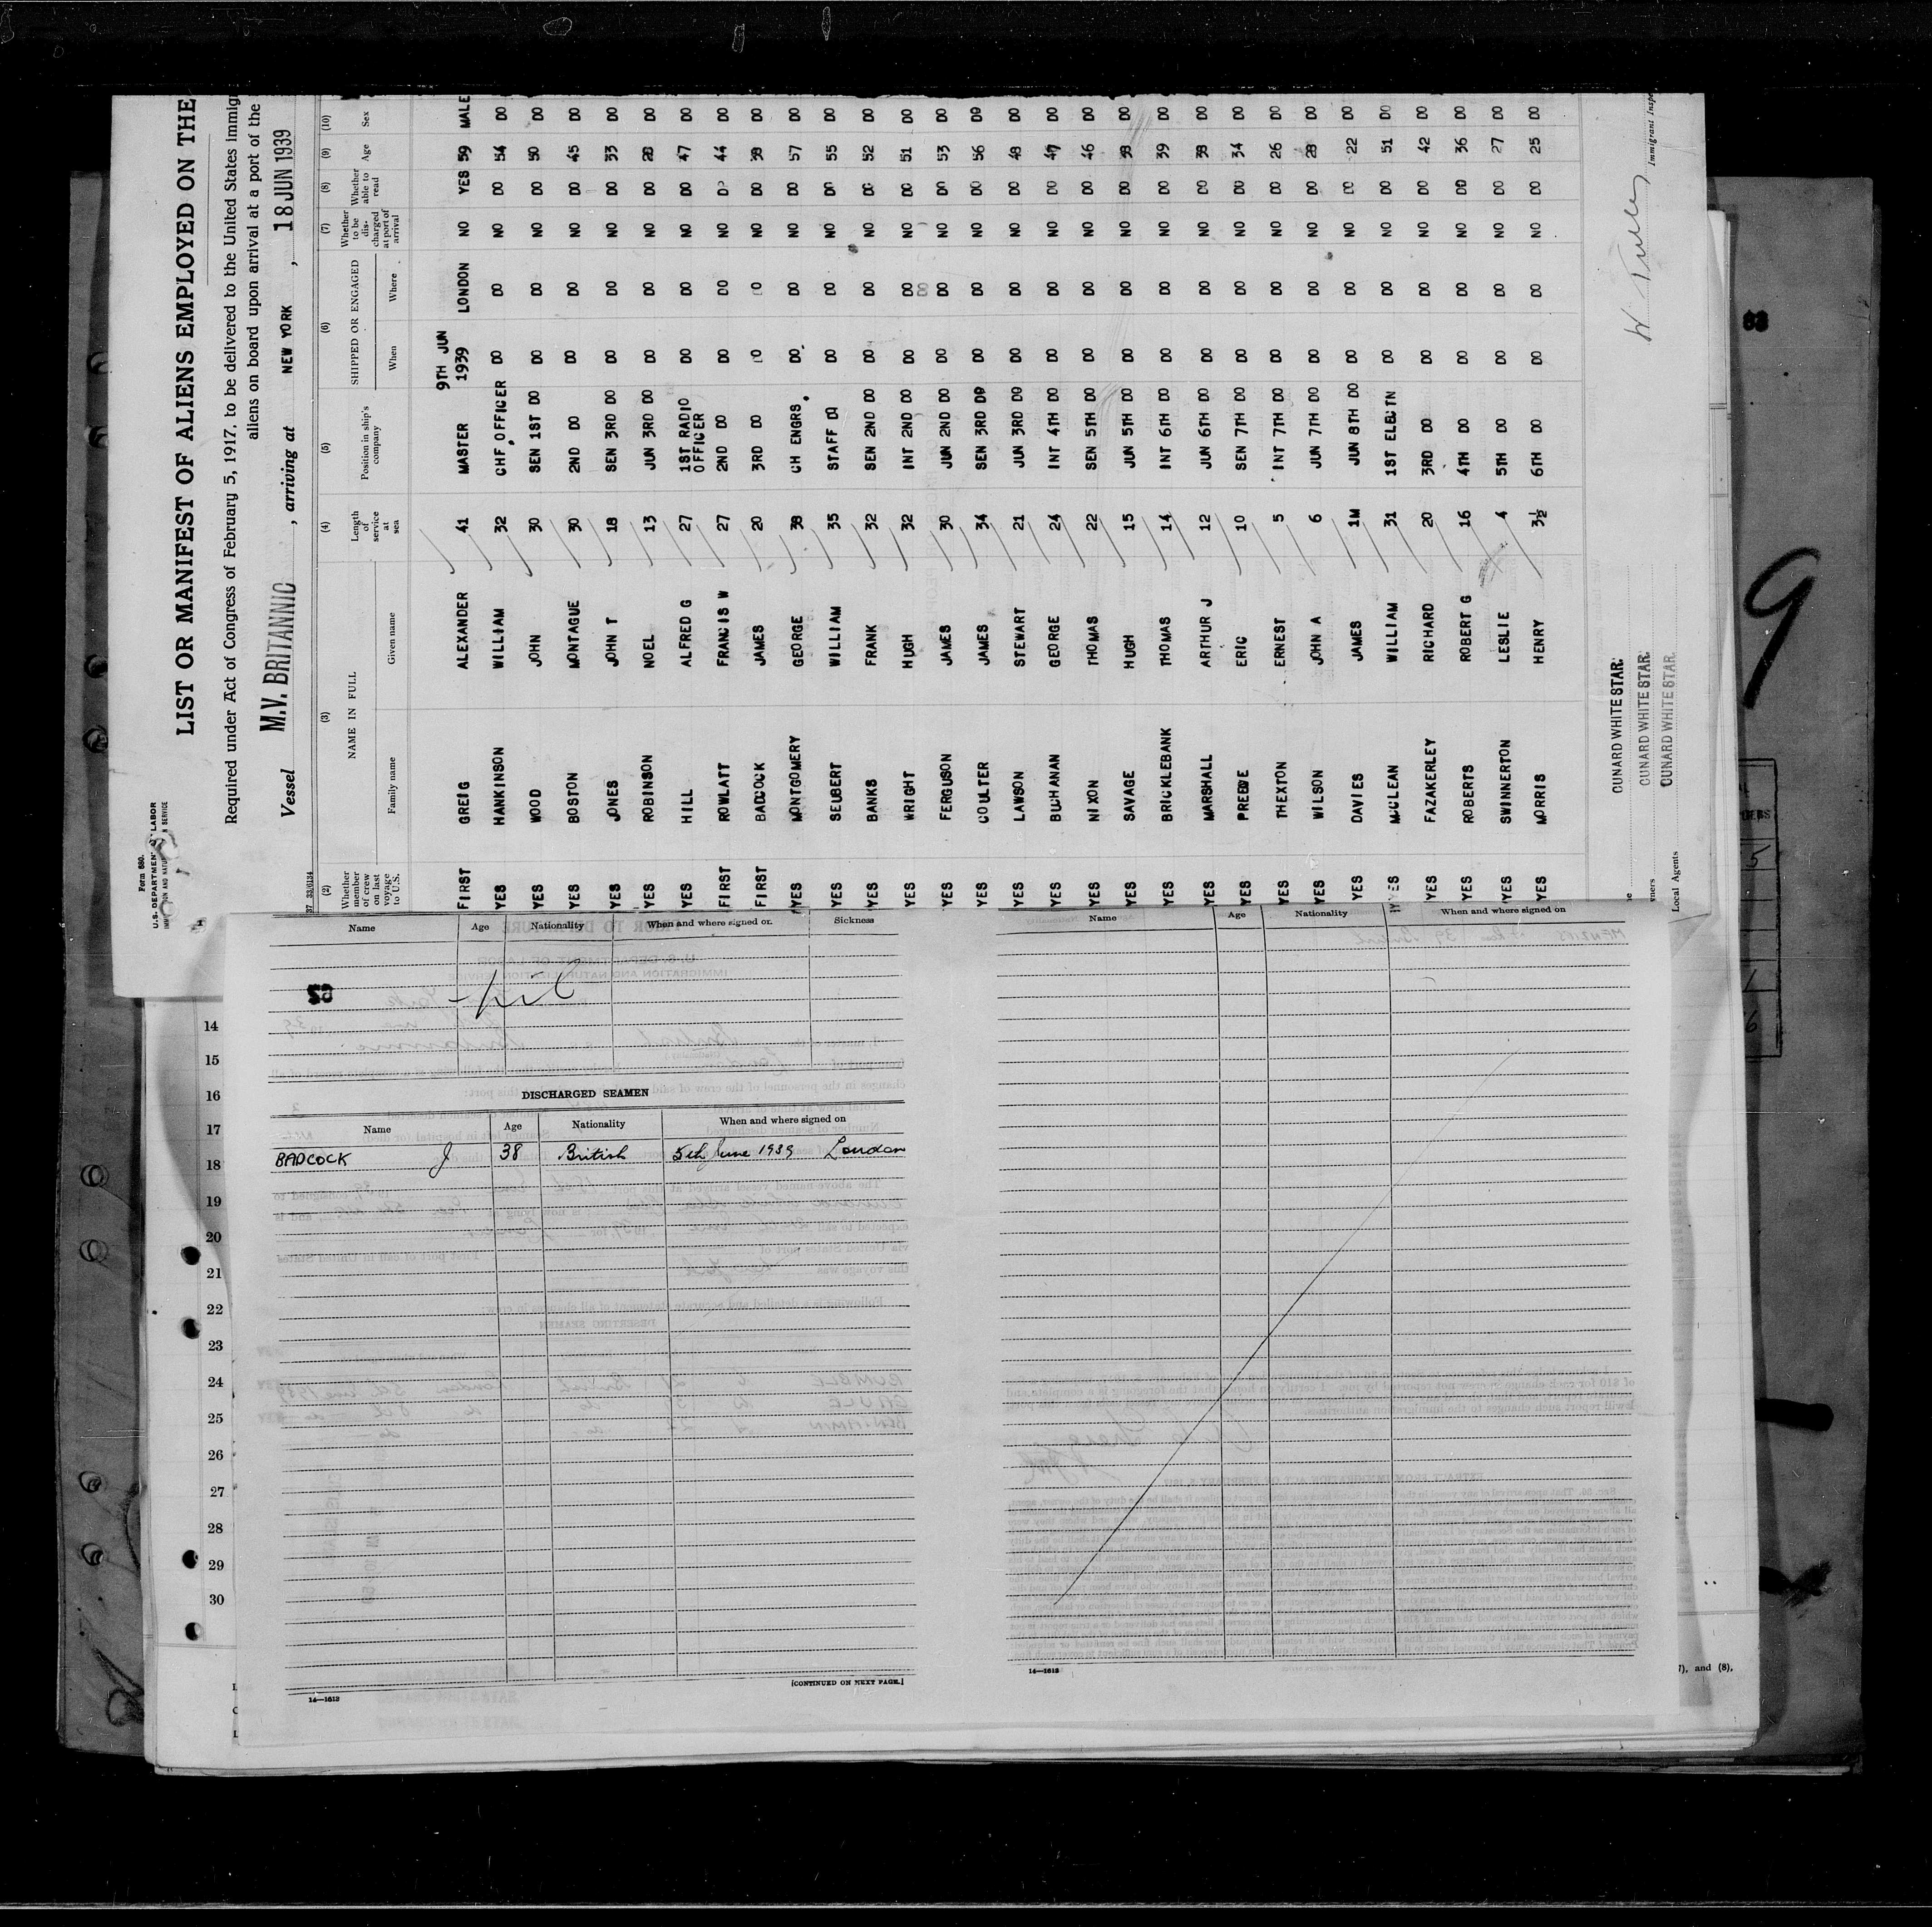 Form 680.
U.S. DEPARTMENT LABOR
LIST OR MANIFEST OF ALIENS EMPLOYED ON THE
Required under Act of Congress of February 5, 1917, to be delivered to the United States
aliens on board upon arrival at a port of the
Vessel M.V. BRITANNIC , arriving at NEW YORK , 18 JUN 1939
(2) (3) (4) (5) (6) (7) (8) (9) (10)
Whether member of crew on last voyage to U.S. NAME IN FULL Family name Given name Length of service at sea Position in ship's company SHIPPED OR ENGAGED When Where Whether to be discharged at port of arrival Whether able to read Age Sex
FIRST GREIG ALEXANDER 41 MASTER 9TH JUN 1939 LONDON NO YES 59 MALE
YES HANKINSON WILLIAM 32 CHF OFFICER DO DO NO DO 54 DO
YES WOOD JOHN 30 SEN 1ST DO DO DO NO DO 50 DO
YES BOSTON MONTAGUE 30 2ND DO DO DO NO DO 45 DO
YES JONES JOHN T 18 SEN 3RD DO DO DO NO DO 33 DO
YES ROBINSON NOEL 13 JUN 3RD DO DO DO NO DO 28 DO
YES HILL ALFRED G 27 1ST RADIO OFFICER DO DO NO DO 47 DO
FIRST ROWLATT FRANCIS W 27 2ND DO DO DO NO DO 44 DO
FIRST BADCOCK JAMES 20 3RD DO DO DO NO DO 38 DO
YES MONTGOMERY GEORGE 38 CH ENGRS. DO. DO NO DO 57 DO
YES SEUBERT WILLIAM 35 STAFF DO DO DO NO DO 55 DO
YES BANKS FRANK 32 SEN 2ND DO DO DO NO DO 52 DO
YES WRIGHT HUGH 32 INT 2ND DO DO DO NO DO 51 DO
YES FERGUSON JAMES 30 JUN 2ND DO DO DO NO DO 53 DO
YES COULTER JAMES 34 SEN 3RD DO DO DO NO DO 56 DO
YES LAWSON STEWART 21 JUN 3RD DO DO DO NO DO 48 DO
YES BUCHANAN GEORGE 24 INT 4TH DO DO DO NO DO 47 DO
YES NIXON THOMAS 22 SEN 5TH DO DO DO NO DO 46 DO
YES SAVAGE HUGH 15 JUN 5TH DO DO DO NO DO 38 DO
YES BRICKLEBANK THOMAS 14 INT 6TH DO DO DO NO DO 39 DO
YES MARSHALL ARTHUR J 12 JUN 6TH DO DO DO NO DO 38 DO
YES PREBDE ERIC 10 SEN 7TH DO DO DO NO DO 34 DO
YES THEXTON ERNEST 5 INT 7TH DO DO DO NO DO 26 DO
YES WILSON JOHN A 6 JUN 7TH DO DO DO NO DO 28 DO
YES DAVIES JAMES 1M JUN 8TH DO DO DO NO DO 22 DO
YES MCCLEAN WILLIAM 31 1ST ELECTN DO DO NO DO 51 DO
YES FAZAKERLEY RICHARD 20 3RD DO DO DO NO DO 42 DO
YES ROBERTS ROBERT G 16 4TH DO DO DO NO DO 36 DO
YES SWINNERTON LESLIE 4 5TH DO DO DO NO DO 27 DO
YES MORRIS HENRY 3½ 6TH DO DO DO NO DO 25 DO
CUNARD WHITE STAR.
CUNARD WHITE STAR.
CUNARD WHITE STAR.
Local Agents
Immigrant
83
9
Name Age Nationality When and where signed on Sickness
62
- Nil
DISCHARGED SEAMEN
Name Age Nationality When and where signed on
BADCOCK J 38 British 5th June 1939 London
[CONTINUED ON NEXT PAGE.]
14—1613
Name Age Nationality When and where signed on
14—1613
14
15
16
17
18
19
20
21
22
23
24
25
26
27
28
29
30
), and (8),